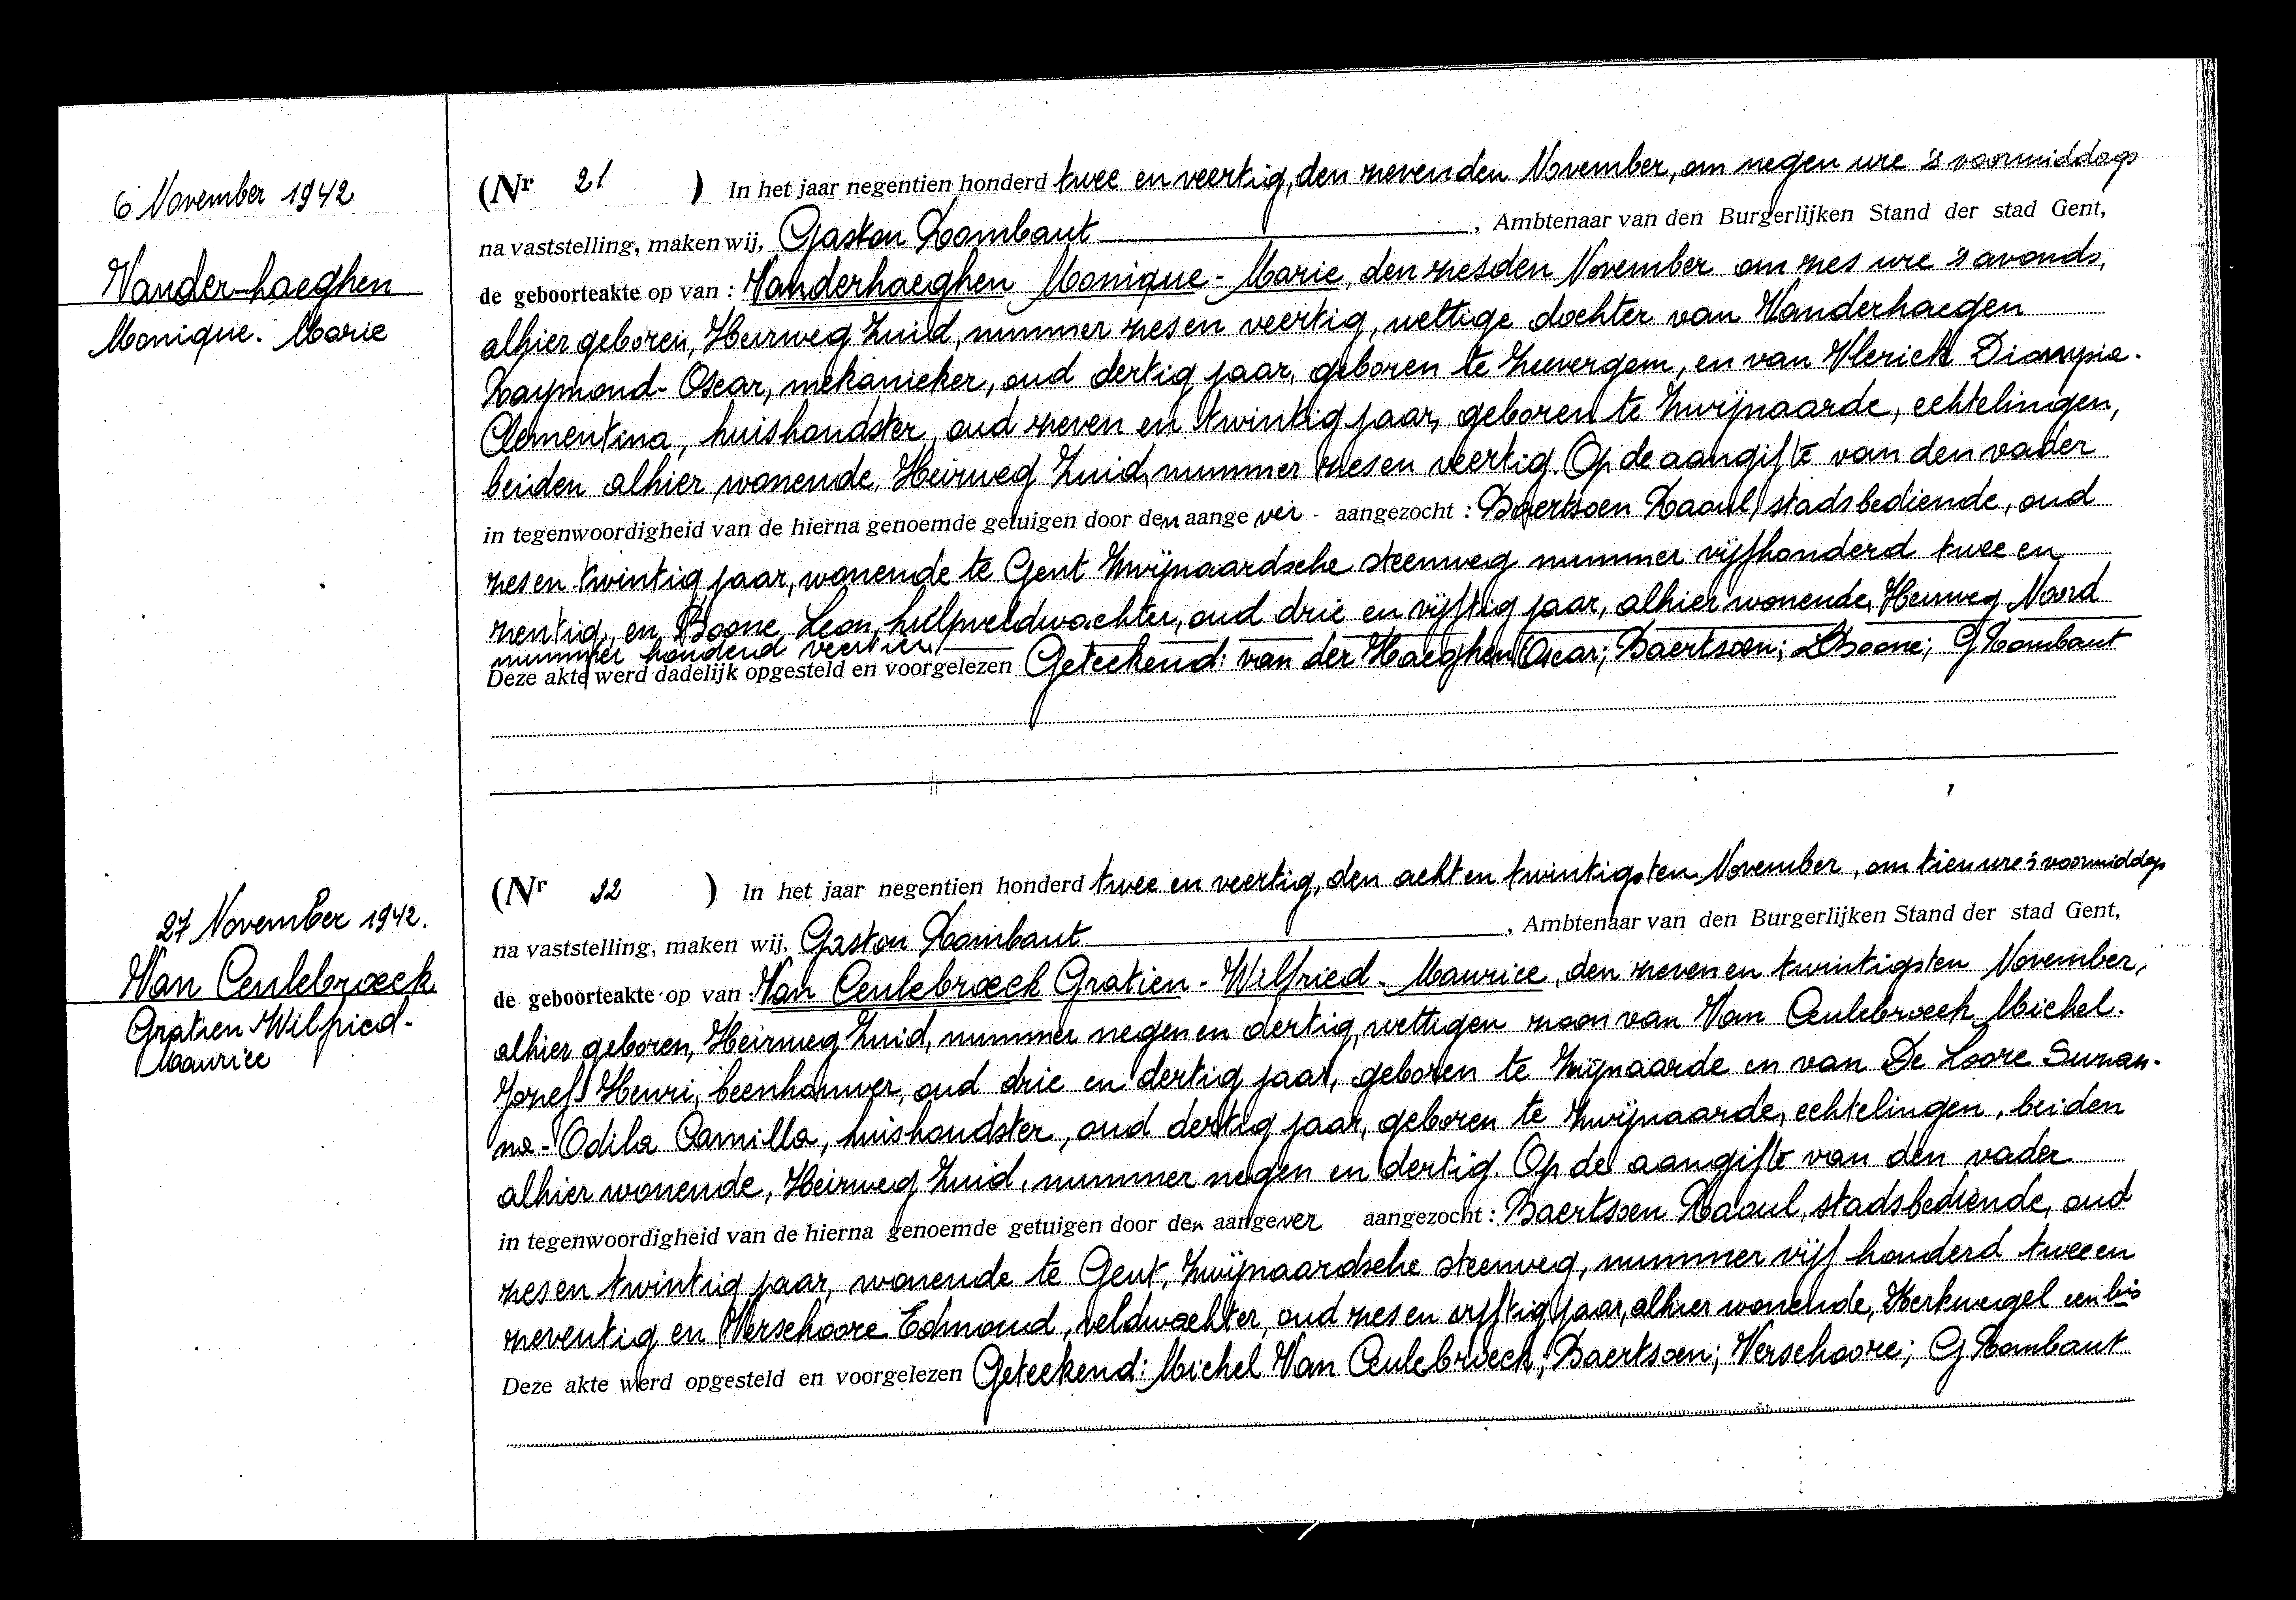 6 November 1942
Vander-haeghen
Monique. Marie
(Nr 21 ) In het jaar negentien honderd twee en veertig, den zevenden November, om negen ure 's voormiddags
na vaststelling, maken wij, Gaston Rombaut , Ambtenaar van den Burgerlijken Stand der stad Gent,
de geboorteakte op van : Vanderhaeghen Monique - Marie, den zesden November om zes ure 's avonds,
alhier geboren, Heirweg Zuid, nummer zes en veertig, wettige dochter van Vanderhaegen
Raymond - Oscar, mekanieker, oud dertig jaar, geboren te Zevergem, en van Vlerick Dionysia -
Clementina, huishoudster, oud zeven en twintig jaar, geboren te Zwijnaarde, echtelingen,
beiden alhier wonende, Heirweg Zuid, nummer zes en veertig. Op de aangifte van den vader
in tegenwoordigheid van de hierna genoemde getuigen door den aange ver - aangezocht : Baertsoen Raoul, stadsbediende, oud
zes en twintig jaar, wonende te Gent Zwijnaardsche steenweg nummer vijfhonderd twee en
zentig, en Boone Leon, hulpveldwachter, oud drie en vijftig jaar, alhier wonende, Heirweg Noord
nummer honderd veertien
Deze akte werd dadelijk opgesteld en voorgelezen Geteekend: van der Haeghen Oscar; Baertsoen; L Boone; G Rombaut
27 November 1942.
Van Ceulebroeck
Gratien Wilfried -
Maurice
(Nr 22 ) In het jaar negentien honderd twee en veertig, den acht en twintigsten November, om tien ure 's voormiddags
na vaststelling, maken wij, Gaston Rombaut , Ambtenaar van den Burgerlijken Stand der stad Gent,
de geboorteakte op van : Van Ceulebroeck Gratien - Wilfried - Maurice, den zeven en twintigsten November,
alhier geboren, Heirweg Zuid, nummer negen en dertig, wettigen zoon van Van Ceulebroeck Michel -
Jozef Henri, beenhouwer, oud drie en dertig jaar, geboren te Zwijnaarde en van De Loore Suzan-
na - Odila Camilla, huishoudster, oud dertig jaar, geboren te Zwijnaarde, echtelingen, beiden
alhier wonende, Heirweg Zuid, nummer negen en dertig. Op de aangifte van den vader
in tegenwoordigheid van de hierna genoemde getuigen door den aangever aangezocht : Baertsoen Raoul, stadsbediende, oud
zes en twintig jaar, wonende te Gent, Zwijnaardsche steenweg, nummer vijf honderd twee en
zeventig en Verschoore Edmond, veldwachter, oud zes en vijftig jaar, alhier wonende, Kerkwegel een bis
Deze akte werd opgesteld en voorgelezen Geteekend: Michel Van Ceulebroeck; Baertsoen; Verschoore; G Rombaut